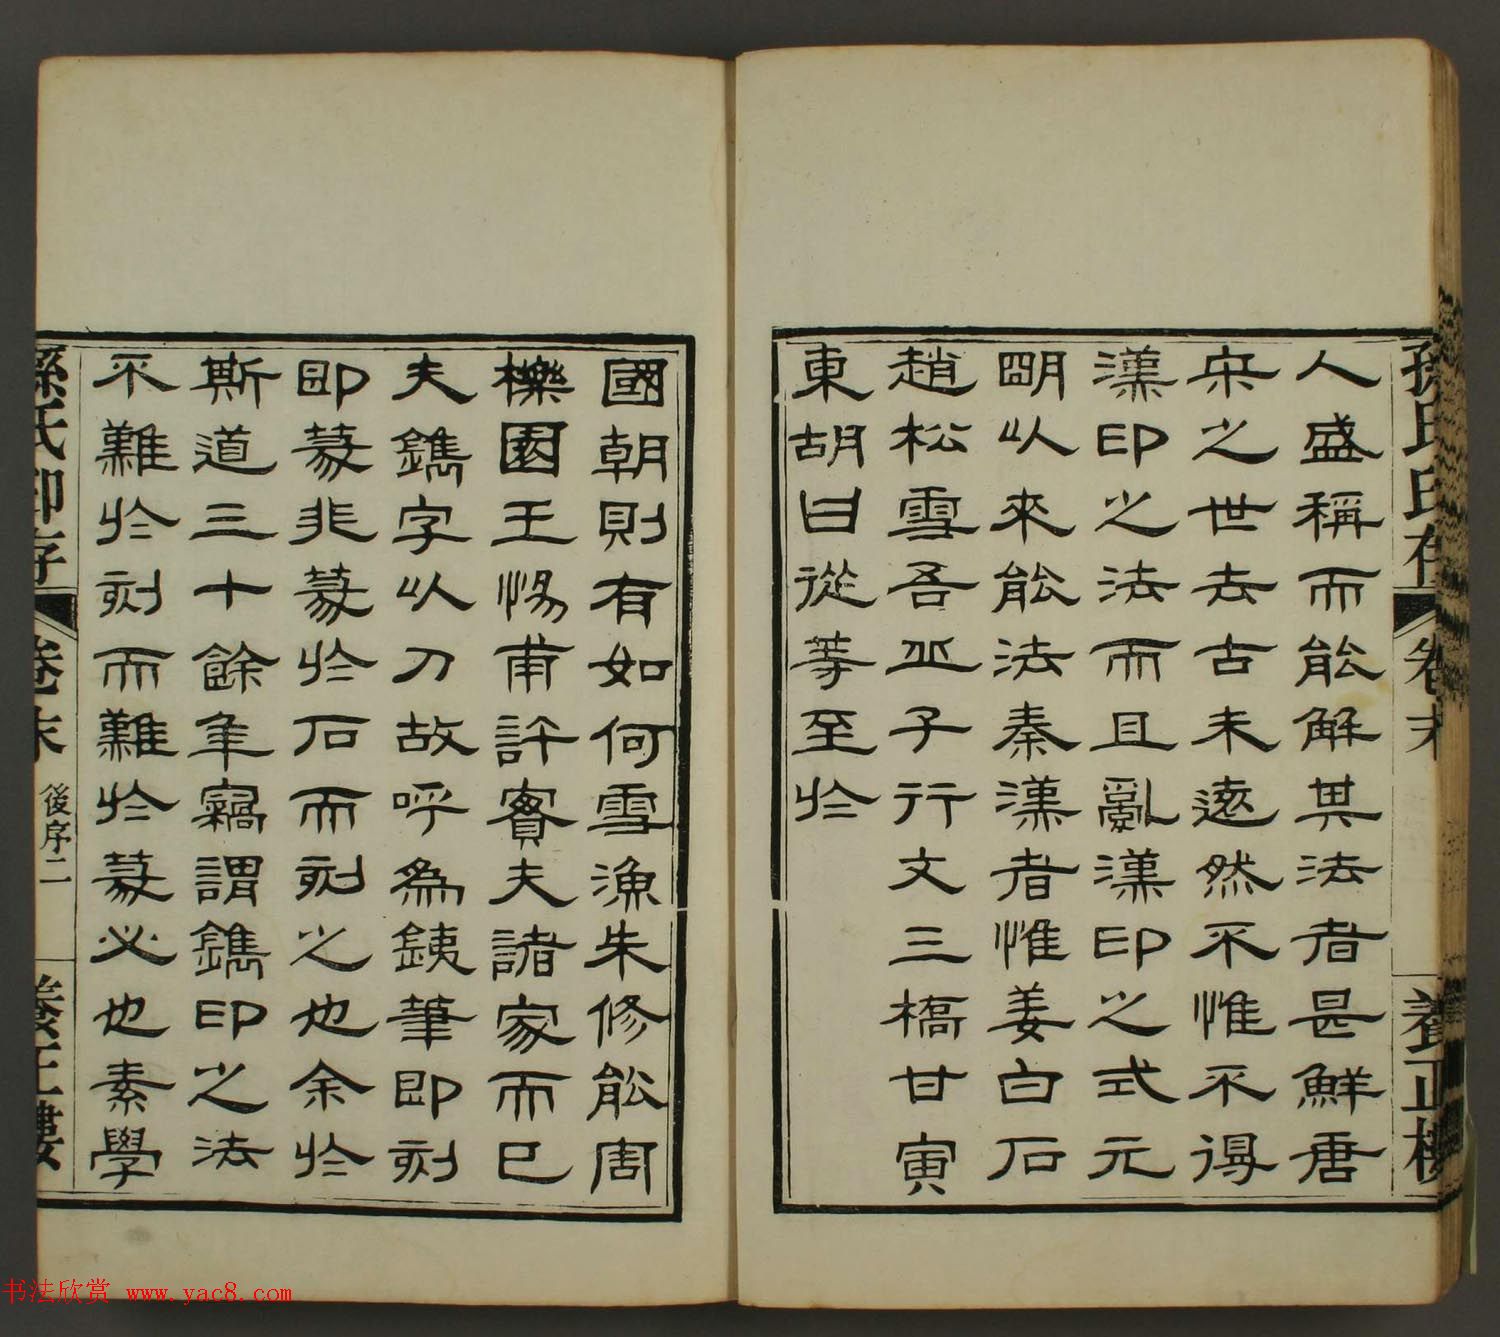 孫氏印存 卷末 養正樓
人盛稱而能解其法者甚鮮唐
宋之世去古未遠然不惟不得
漢印之法而且亂漢印之式元
朙以來能法秦漢者惟姜白石
趙松雪吾丘子行文三橋甘寅
東胡曰從等至於
國朝則有如何雪漁朱修能周
櫟園王惕甫許實夫諸家而已
夫鐫字以刀故呼為銕筆即刻
即篆非篆於石而刻之也余於
斯道三十餘年竊謂鐫印之法
不難於刻而難於篆必也素學
孫氏印存 卷末 後序二 養正樓
书法欣赏 www.yac8.com